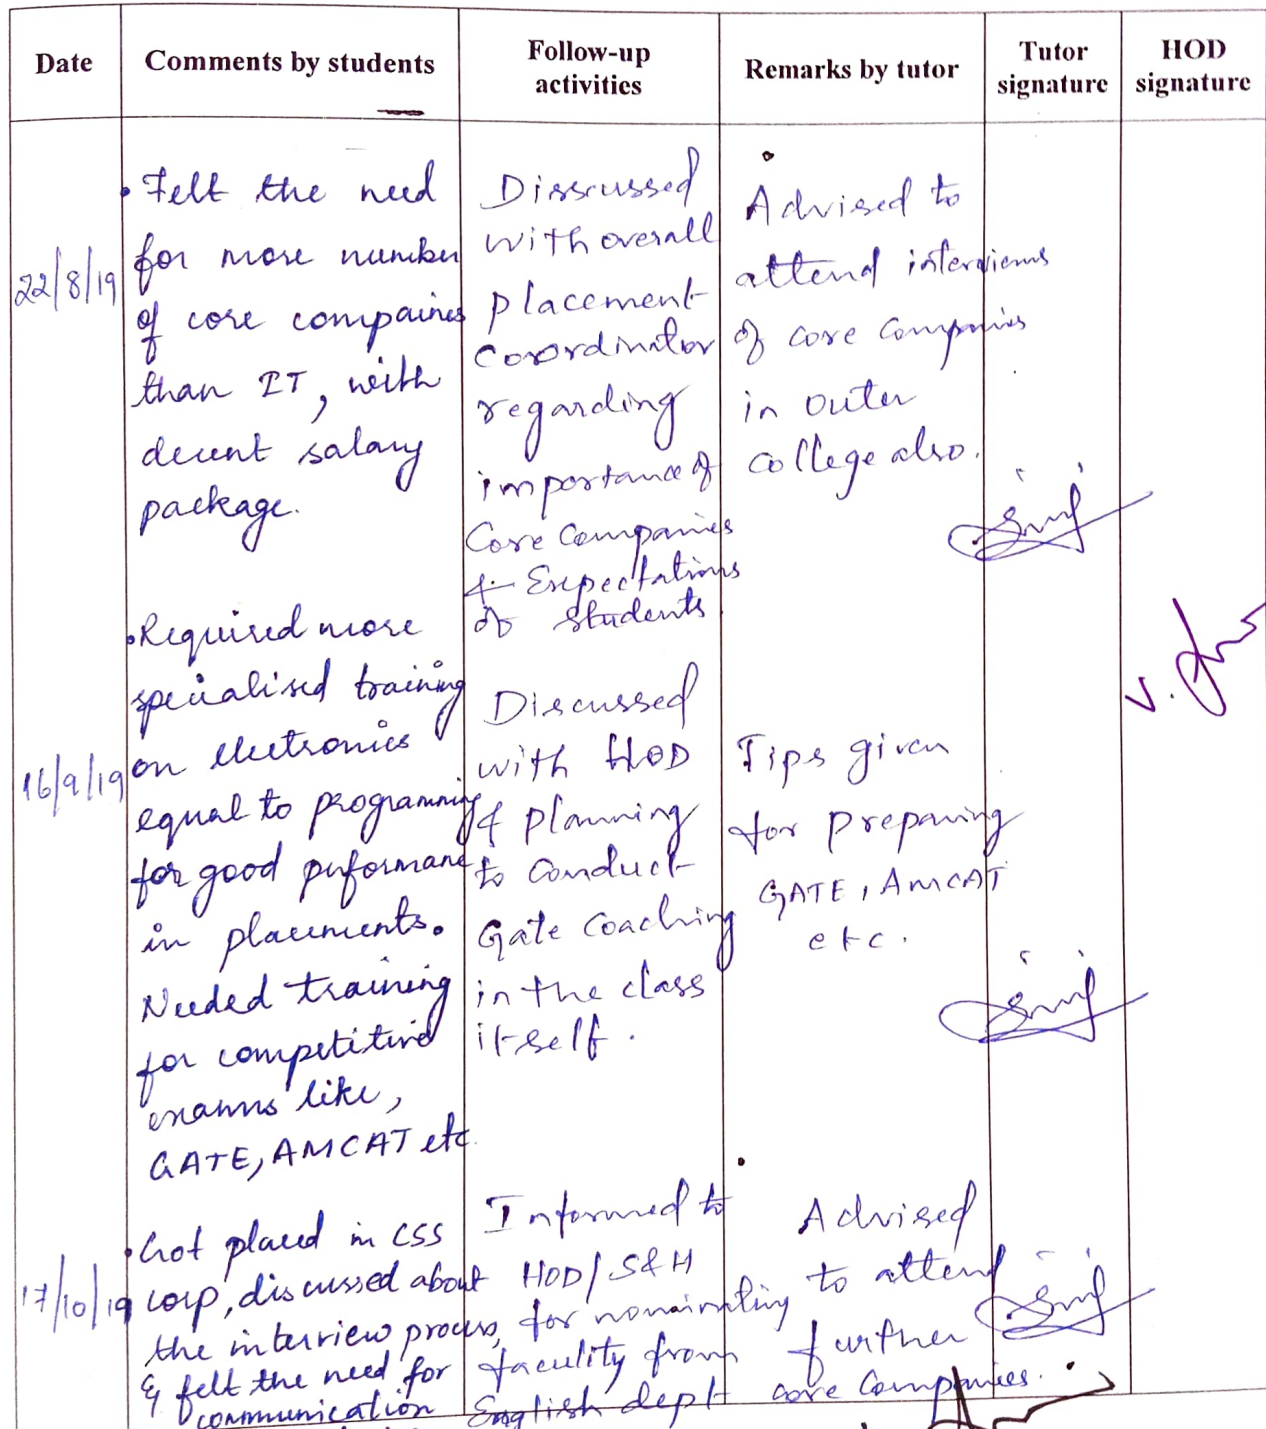 Date
Comments by students
Follow-up
activities
Remarks by tutor
Tutor
signature
HOD
signature
22/8/19
• Felt the need
for more number
of core compaines
than IT, with
decent salary
package.
Disscussed
with overall
placement
coordinator
regarding
importance of
Core Companies
& Expectations
of students.
Advised to
attend interviews
of core companies
in outer
college also.
16/9/19
• Required more
specialised training
on electronics
equal to programming
for good performance
in placements.
Needed training
for competitive
exams like,
GATE, AMCAT etc.
Discussed
with HOD
& planning
to conduct
Gate coaching
in the class
itself.
Tips given
for preparing
GATE, AMCAT
etc.
V.
17/10/19
• Got placed in CSS
corp, discussed about
the interview process,
& felt the need for
communication
Informed to
HOD/S&H
for nominating
faculity from
English dept
Advised
to attend
further
core Companies.